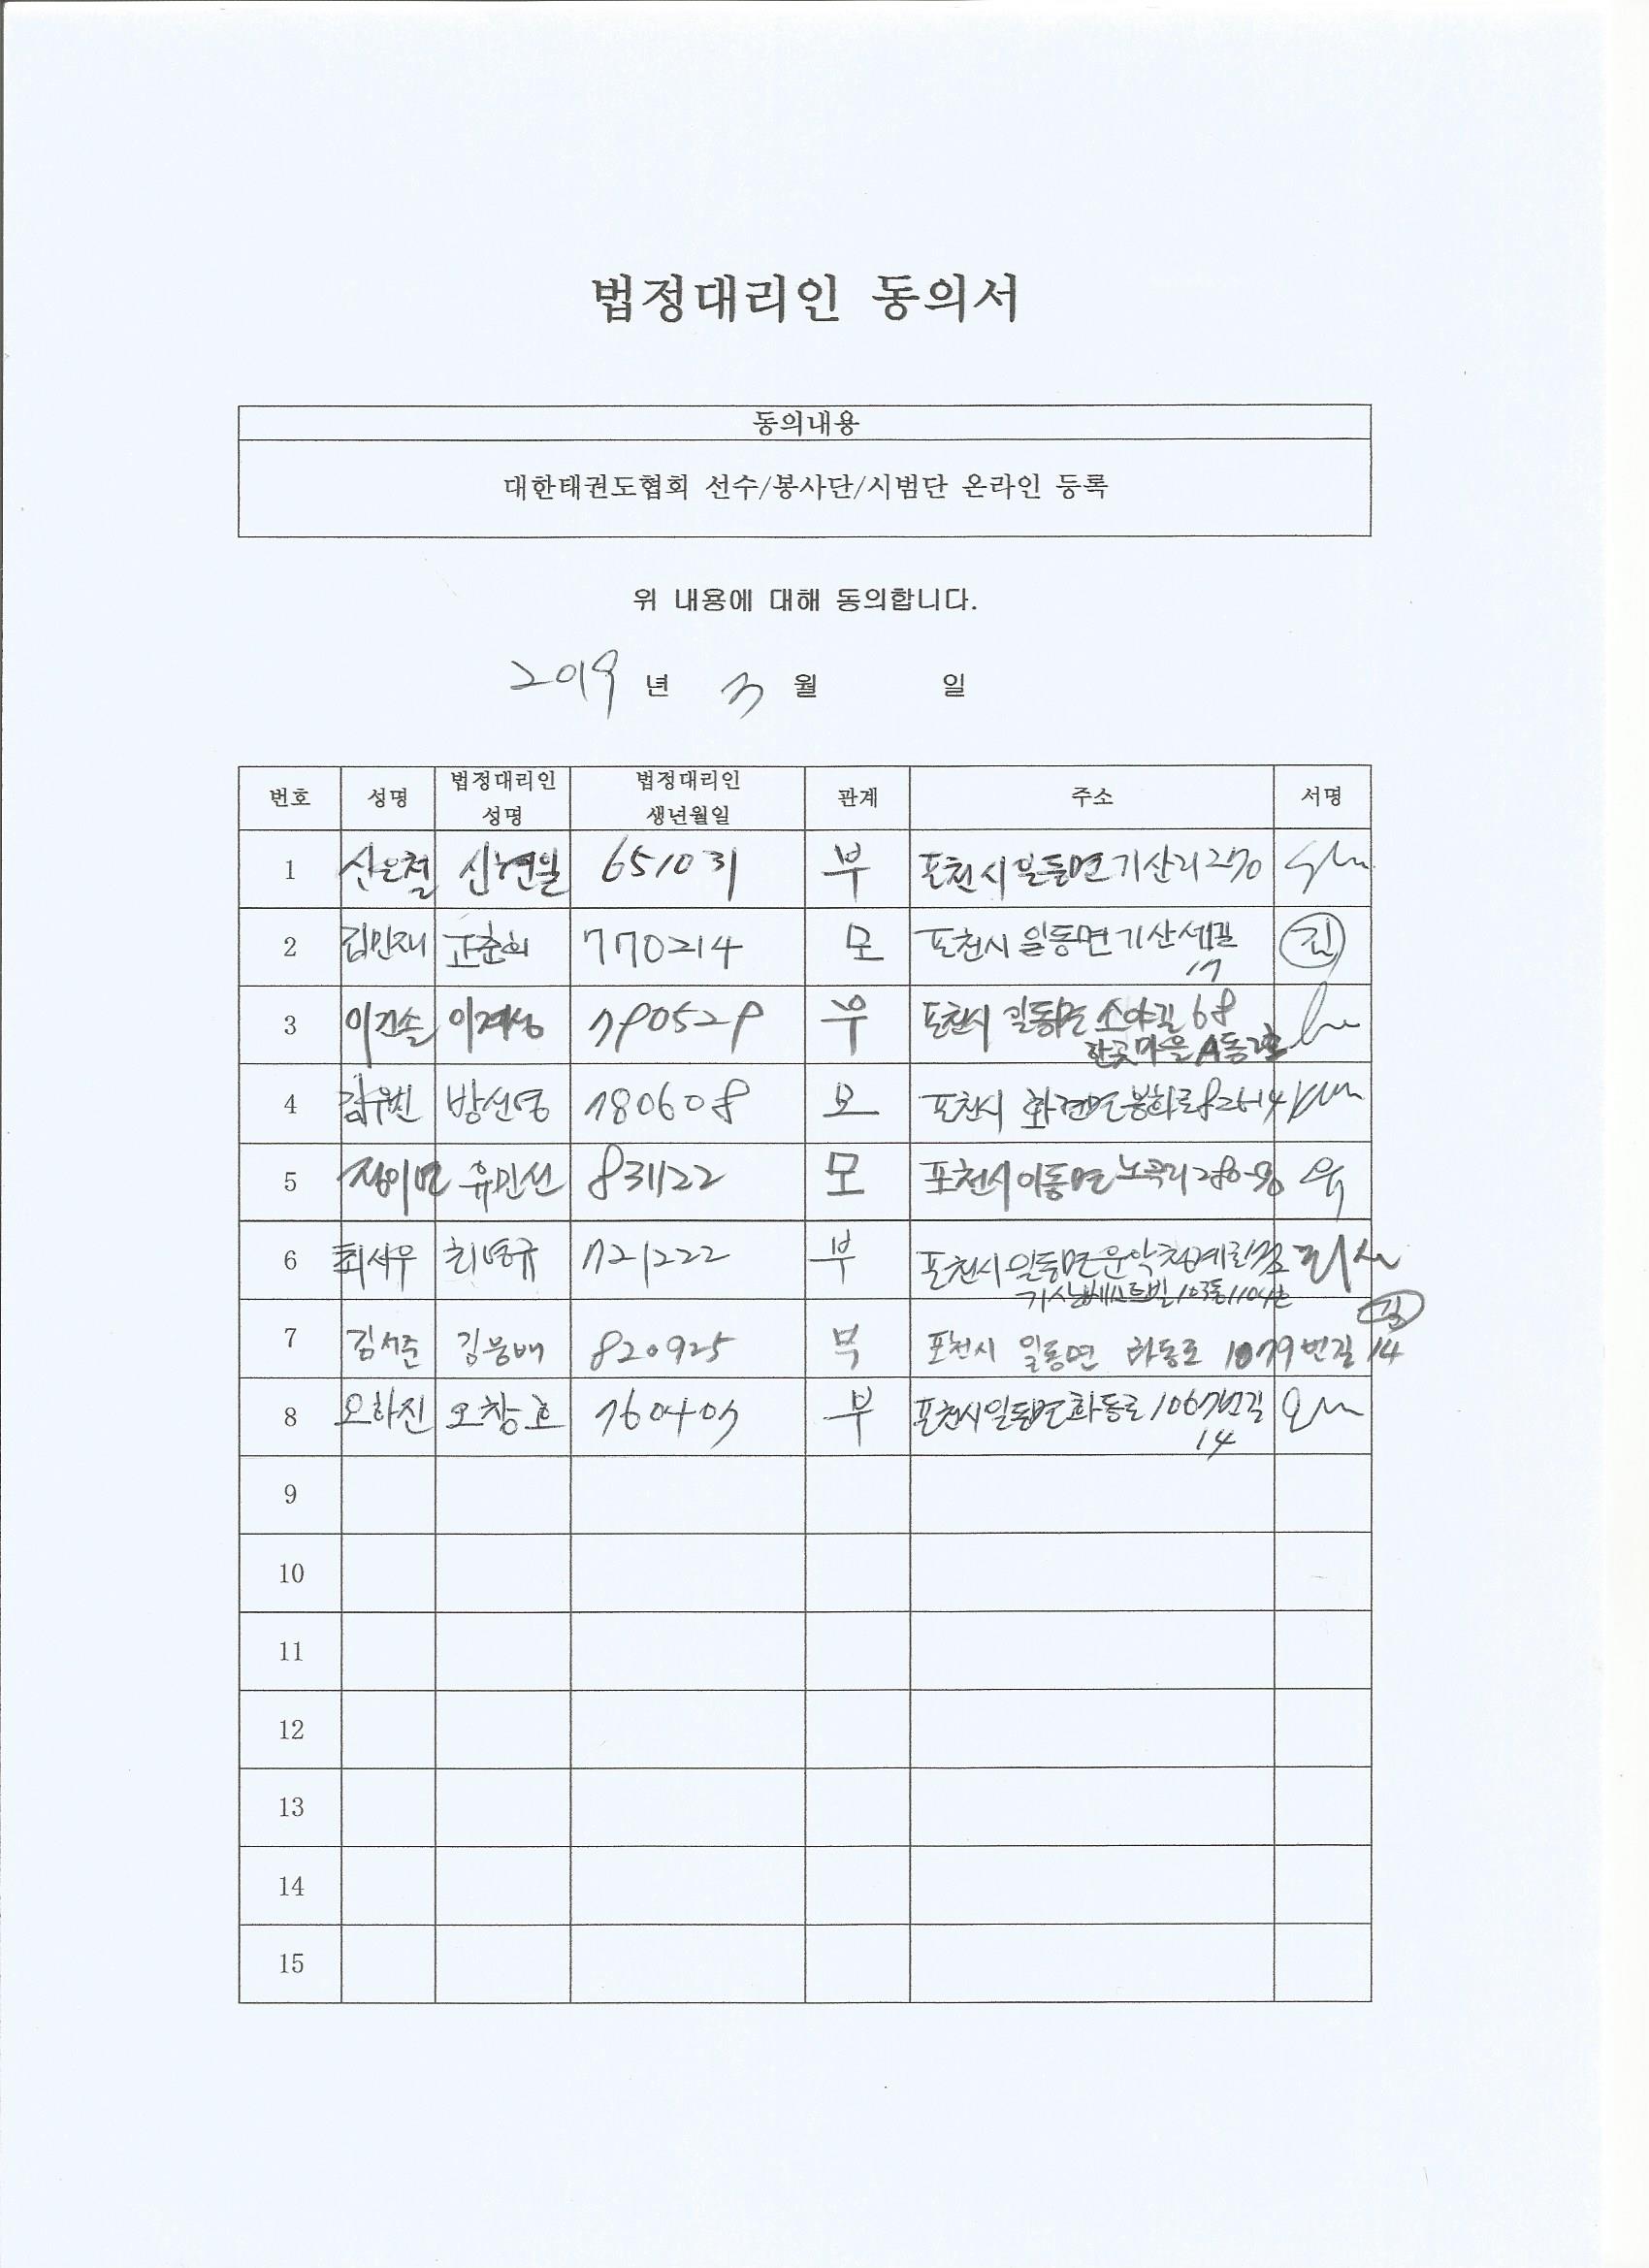 법정대리인 동의서
동의내용
대한태권도협회 선수/봉사단/시범단 온라인 등록
위 내용에 대해 동의합니다.
2019 년 3 월 일
번호 성명 법정대리인 성명 법정대리인 생년월일 관계 주소 서명
1 신은철 신현일 651031 부 포천시 일동면 기산리 270
2 김민재 고춘희 770214 모 포천시 일동면 기산새길
17
3 이긴솔 790529 부 포천시 일동면 소야길 68
A동
4 방선영 780608 모 포천시 화현면 봉화로
5 유민선 831122 모 포천시 이동면 노곡리
6 최서우 최병규 721222 부 포천시 일동면 운악청계로
103동 1104호
7 김서준 김봉배 820925 부 포천시 일동면 화동로 1079번길 14
8 오하진 오창호 760405 부 포천시 일동면 화동로 1067번길
14
9
10
11
12
13
14
15